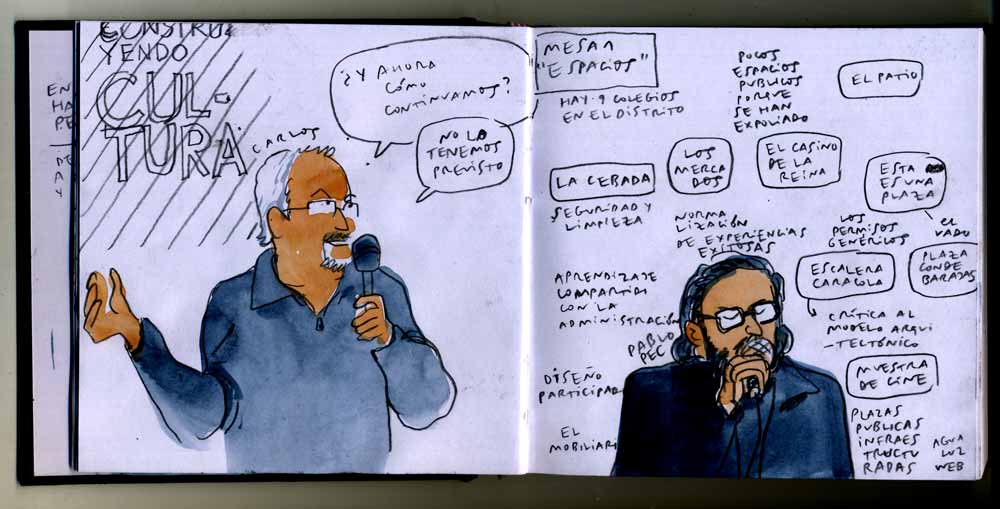 CONSTRU-
YENDO
CUL-
TURA
CARLOS
¿Y AHORA
CÓMO
CONTINUAMOS?
NO LO
TENEMOS
PREVISTO
EN
HA
MESA 1
"ESPACIOS"
HAY 9 COLEGIOS
EN EL DISTRITO
POCOS
ESPACIOS
PUBLICOS
PORQUE
SE HAN
EXPOLIADO
EL PATIO
LA CEBADA
LOS
MERCA
DOS
EL CASINO
DE LA
REINA
ESTA
ES UNA
PLAZA
SEGURIDAD Y
LIMPIEZA
NORMA
LIZACIÓN
DE EXPERIENCIAS
EXITOSAS
LOS
PERMISOS
GENÉRICOS
EL
VADO
APRENDIZAJE
COMPARTIDO
CON LA
ADMINISTRACIÓN
ESCALERA
CARACOLA
PLAZA
CONDE
BARAJAS
PABLO
PEC
CRÍTICA AL
MODELO ARQUI
-TECTÓNICO
DISEÑO
PARTICIPAD
MUESTRA
DE CINE
EL
MOBILIARI
PLAZAS
PUBLICAS
INFRAES
TRUCTU
RADAS
AGUA
LUZ
WEB